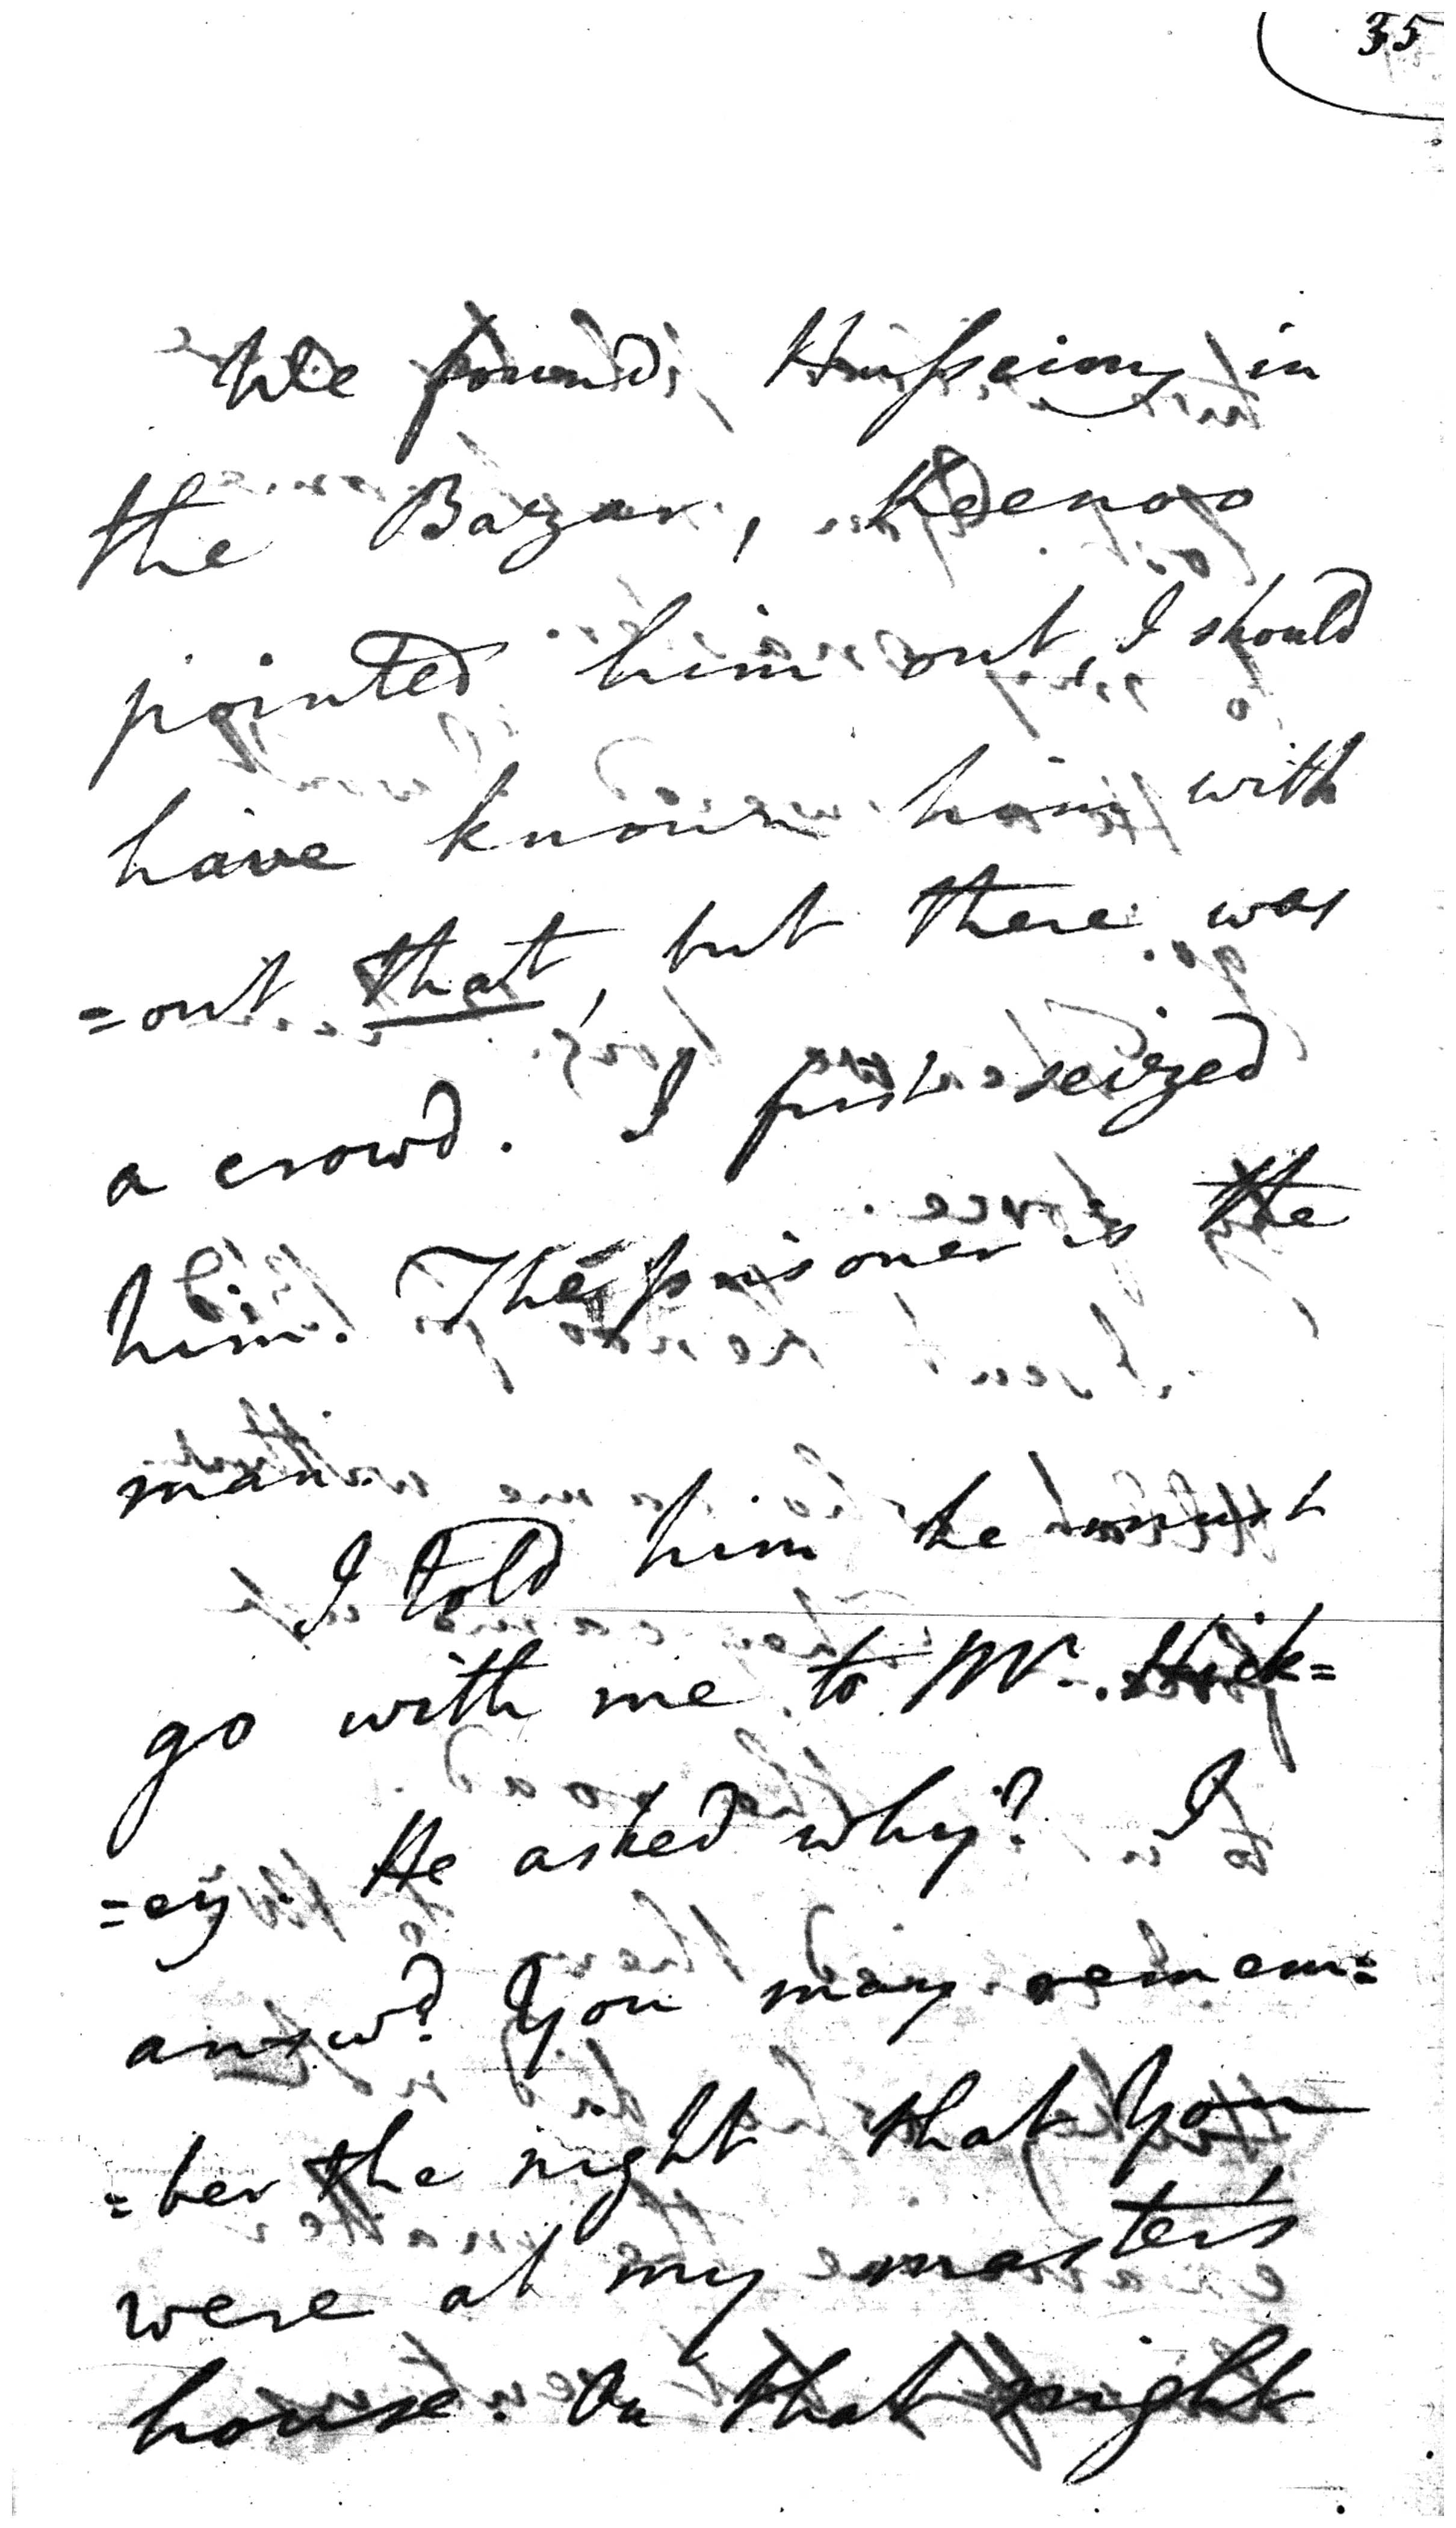 35
We found Hussein in
the Bazar, Keenoo
pointed him out, I should
have known him with
=out that, but there was
a crowd. I first seized
him. The prisoner is the
man.
I told him he must
go with me to Mr. Hick=
=ey. He asked why? I
answd. You may remem=
=ber the night that you
were at my master's
house. On that night